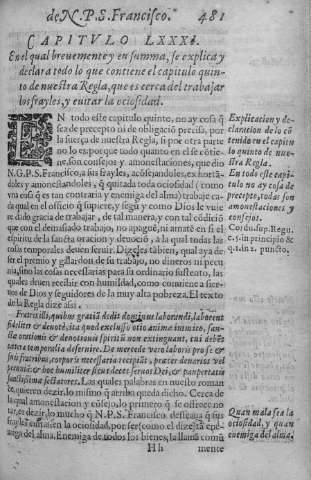 de N. P. S. Francisco. 481
CAPITVLO LXXXI.
En el qual brevemente y en summa, se explica y
declara todo lo que contiene el capitulo quin-
to de nuestra Regla, que es cerca del trabajar
los frayles, y euitar la ociosidad.
EN todo este capitulo quinto, no ay cosa q̃
sea de precepto ni de obligació precisa, por
la fuerça de nuestra Regla, si por otra parte
no lo es, porque todo quanto en el se cótie-
ne, son consejos y amonestaciones, que dio
N. G. P. S. Francisco, a sus frayles, acósejandoles, exhortá-
doles y amonestandoles, q̃ quitada toda ociosidad (como
vna cosa q̃ es tan contraria y enemiga del alma) trabaje ca-
da qual en el officio q̃ supiere, y segũ y como Dios le vuie
re dado gracia de trabajar, de tal manera, y con tal códició
que con el demasiado trabajo, no apague, ni amate en si el
espiritu de la sancta oracion y deuoció, a la qual todas las
cosas temporales deuen seruir. Dizeles tábien, qual aya de
ser el premio y gualardon de su trabajo, no dineros ni pecu
nia, sino las cosas necessarias para su ordinario sustento, las
quales deuen recibir con humildad, como conuiene a sier-
uos de Dios y seguidores de la muy alta pobreza. El texto
de la Regla dize assi.
Fratres illi, quibus gratiã dedit dominus laborandi, laborent
fideliter & deuotè, ita quod excluso otio animæ inimico, san-
ctæ orationis & deuotionis spiritũ non extinguant, cui debẽt
cætera temporalia deseruire. De mercede verò laboris pro se &
suis fratribus, corporis necessaria recipiãt, præter denarios vel
pecuniã: & hoc humiliter sicut decet seruos Dei, & paupertatis
sanctissimæ sectatores. Las quales palabras en nuestro roman
ce, quieren dezir, lo mismo q̃ arriba queda dicho. Cerca de
la qual amonestacion y cósejo, lo primero q̃ se ofrece no-
tar, es dezir, lo mucho q̃ N. P. S. Francisco desseaua q̃ sus
frayles euitassen la ociosidad, por ser (como el dize) tá ene-
miga del alma. Enemiga de todos los bienes, la llama comũ
Hh mente
Explicacion y de
claracion de lo cõ
tenido en el capitu
lo quinto de nues-
tra Regla.
En todo este capi-
tulo no ay cosa de
precepto, todas son
amonestaciones y
consejos.
Cordu. sup. Regu.
c. 5. in principio &
q. 1. dict. puncto.
Quan mala sea la
ociosidad, y quan
enemiga del alma.